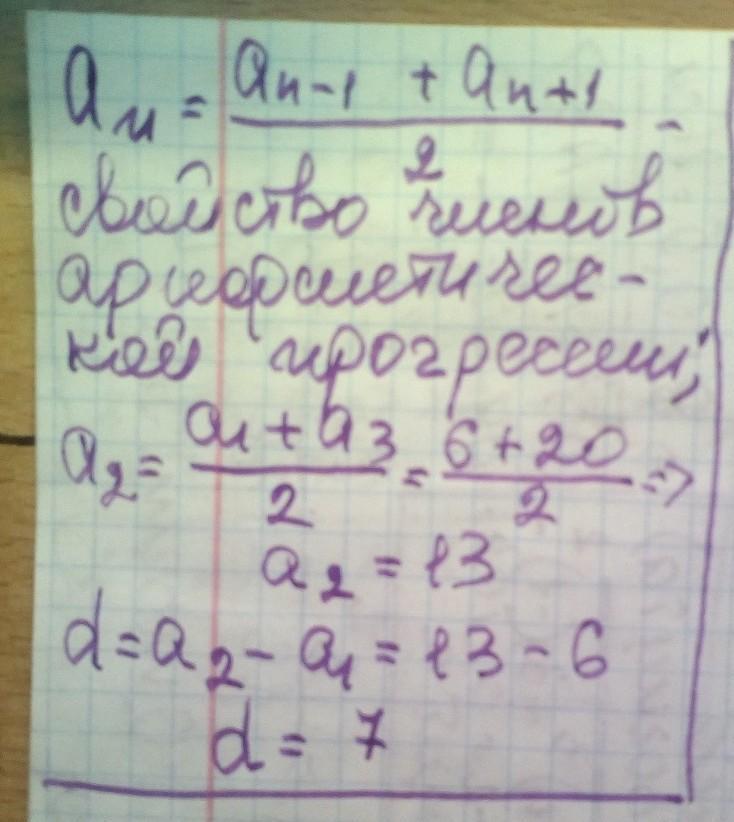 aₙ = (aₙ₋₁ + aₙ₊₁)/2 -
свойство членов
арифметичес-
кой прогрессии;
a₂ = (a₁ + a₃)/2 = (6 + 20)/2 =>
a₂ = 13
d = a₂ - a₁ = 13 - 6
d = 7